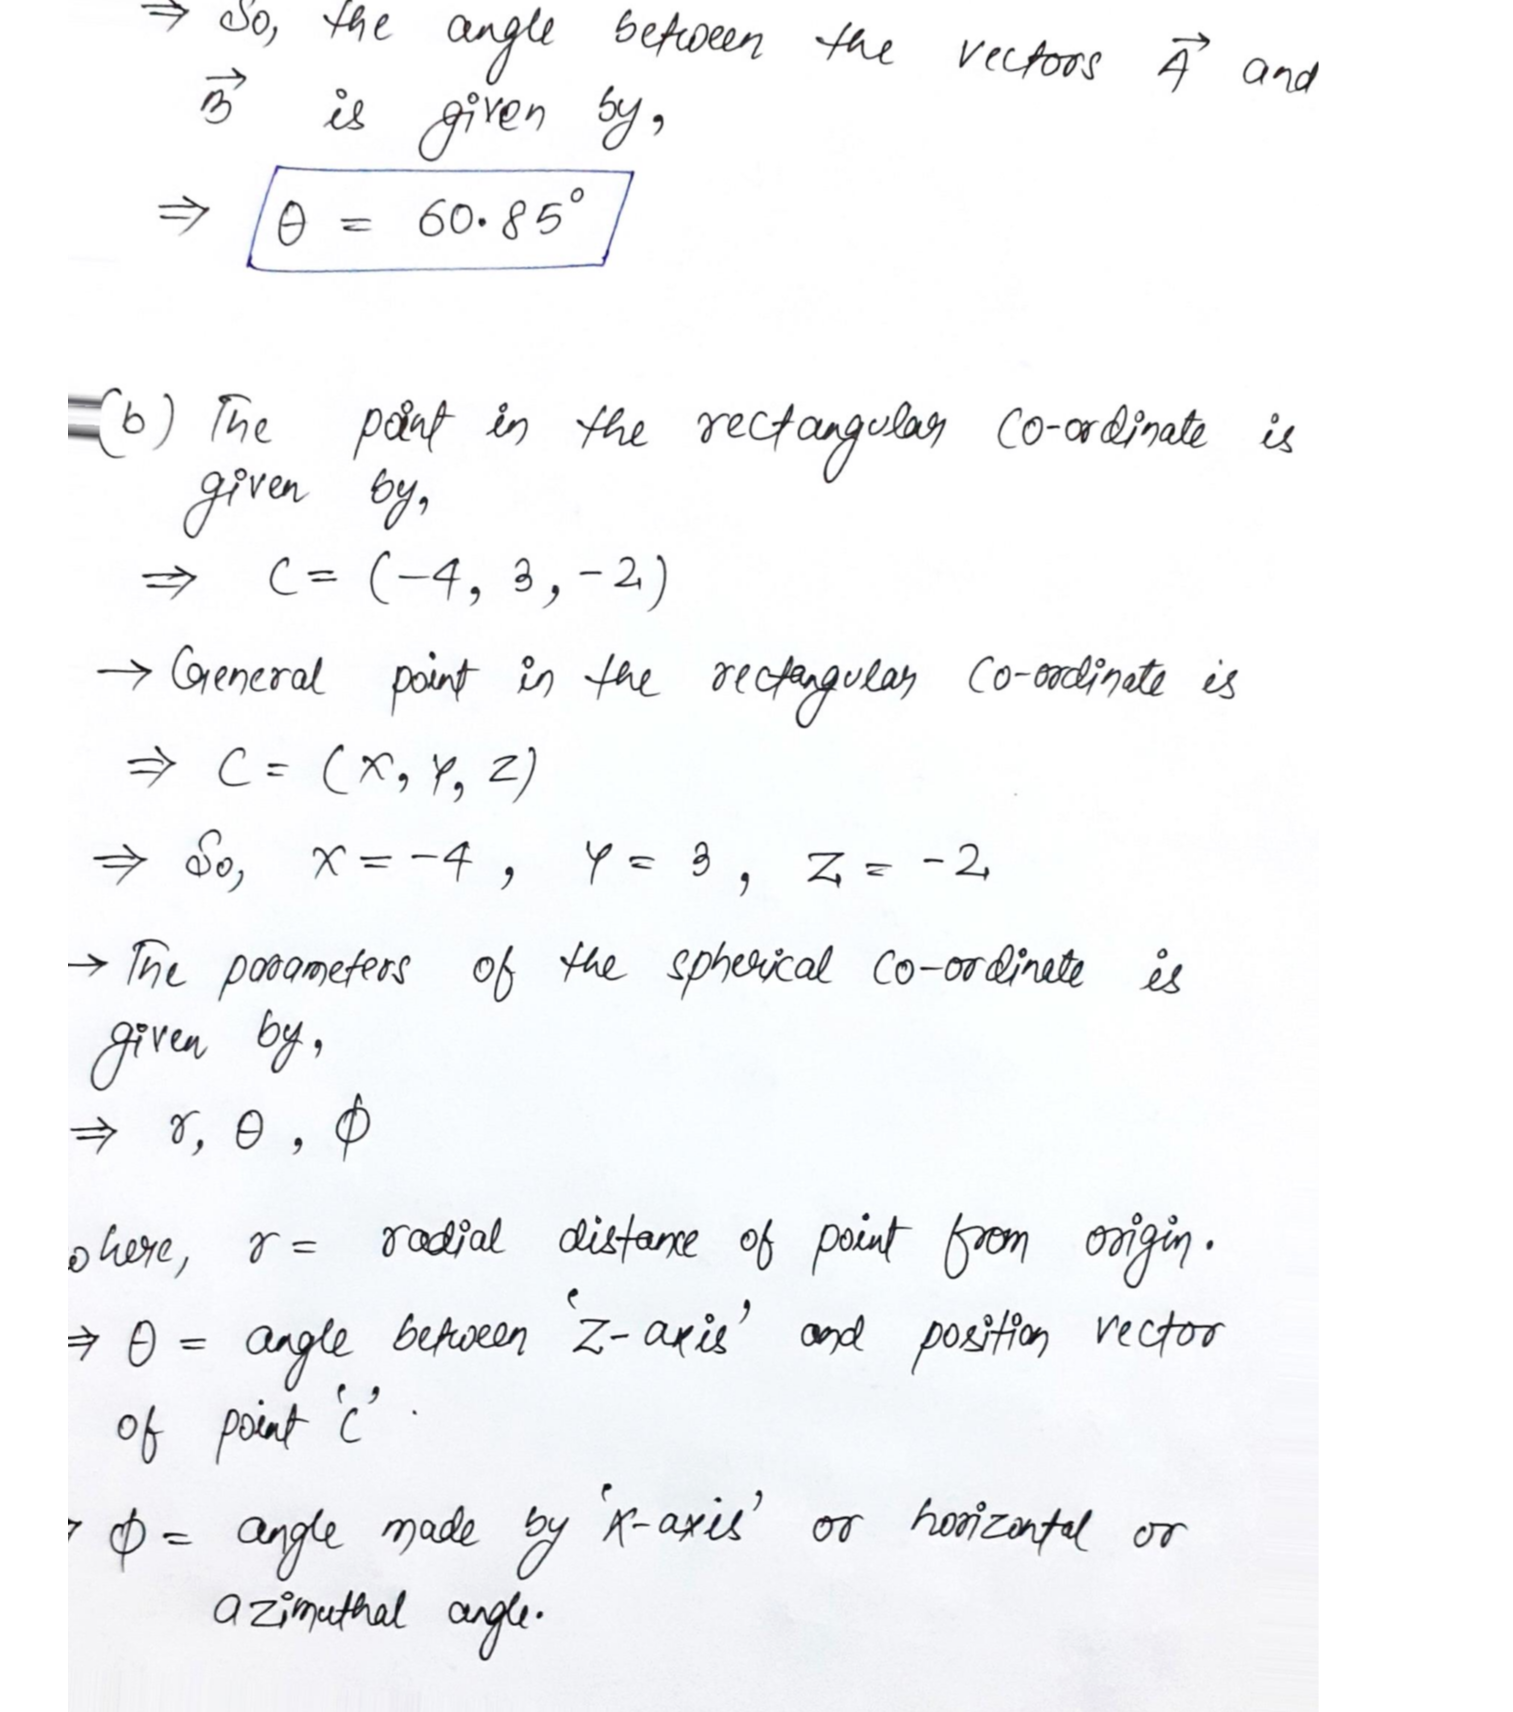 ⇒ So, the angle between the vectors A⃗ and
B⃗ is given by,
⇒ θ = 60.85°
(b) The point in the rectangular co-ordinate is
given by,
⇒ C = (-4, 3, -2)
→ General point in the rectangular co-ordinate is
⇒ C = (x, y, z)
⇒ So, x = -4, y = 3, z = -2
→ The parameters of the spherical co-ordinate is
given by,
⇒ r, θ, ϕ
where, r = radial distance of point from origin.
⇒ θ = angle between 'z-axis' and position vector
of point 'c'.
→ ϕ = angle made by 'x-axis' or horizontal or
azimuthal angle.